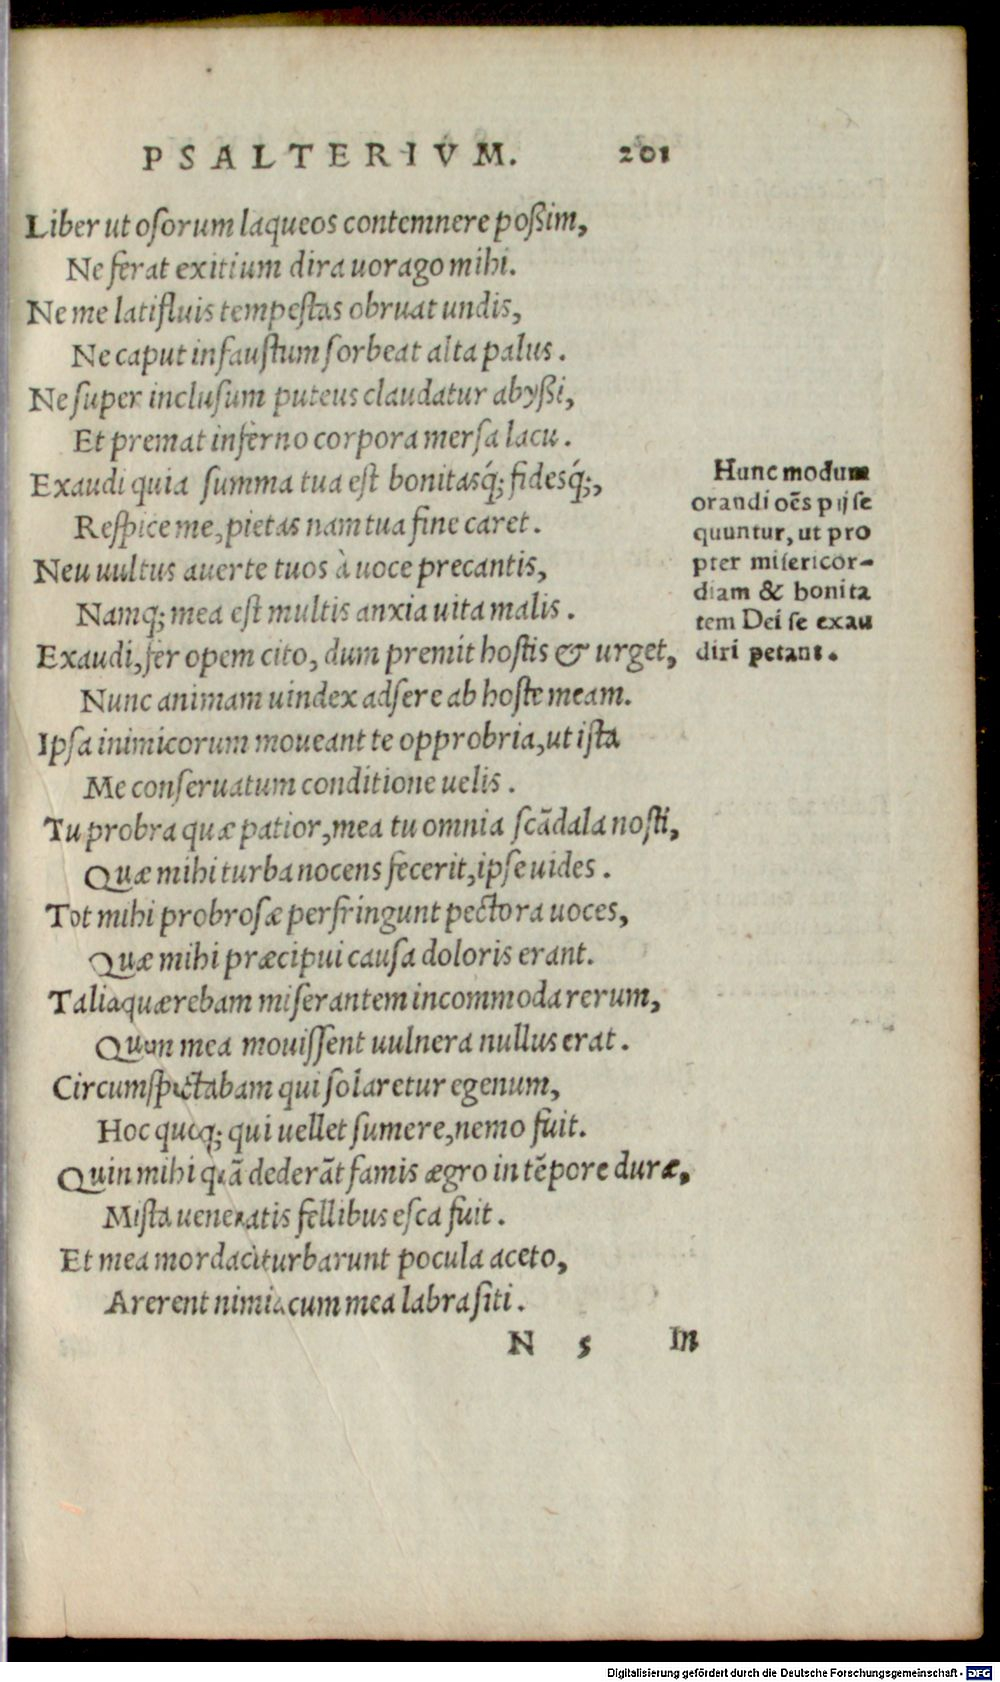 PSALTERIVM. 201
Liber ut osorum laqueos contemnere poßim,
Ne ferat exitium dira uorago mihi.
Ne me latifluis tempestas obruat undis,
Ne caput infaustum sorbeat alta palus.
Ne super inclusum puteus claudatur abyßi,
Et premat inferno corpora mersa lacu.
Exaudi quia summa tua est bonitasq́; fidesq́;,
Respice me, pietas nam tua fine caret.
Neu uultus auerte tuos à uoce precantis,
Namq; mea est multis anxia uita malis.
Exaudi, fer opem cito, dum premit hostis & urget,
Nunc animam uindex adsere ab hoste meam.
Ipsa inimicorum moueant te opprobria, ut ista
Me conseruatum conditione uelis.
Tu probra quæ patior, mea tu omnia scādala nosti,
Quæ mihi turba nocens fecerit, ipse uides.
Tot mihi probrosæ perfringunt pectora uoces,
Quæ mihi præcipui causa doloris erant.
Talia quærebam miserantem incommoda rerum,
Quem mea mouissent uulnera nullus erat.
Circumspectabam qui solaretur egenum,
Hoc quoq; qui uellet sumere, nemo fuit.
Quin mihi quā dederāt famis ægro in tēpore duræ,
Mista uenenatis fellibus esca fuit.
Et mea mordaci turbarunt pocula aceto,
Arerent nimia cum mea labra siti.
Hunc modum
orandi oēs pij se
quuntur, ut pro
pter misericor-
diam & bonita
tem Dei se exau
diri petant.
N 5 In
Digitalisierung gefördert durch die Deutsche Forschungsgemeinschaft - DFG